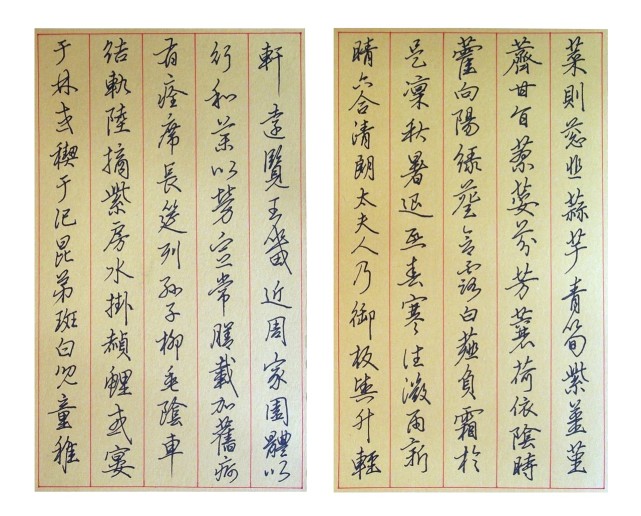 菜則蔥韭蒜芋青筍紫薑堇
薺甘旨蓼荽芬芳蘘荷依陰時
藿向陽綠葵含露白薤負霜於
是凜秋暑退熙春寒往微雨新
晴六合清朗太夫人乃御板輿升輕
軒遠覽王畿近周家園體以
行和藥以勞宣常膳載加舊痾
有痊席長筵列孫子柳垂陰車
結軌陸摘紫房水掛赬鯉或宴
于林或禊于汜昆弟斑白兒童稚